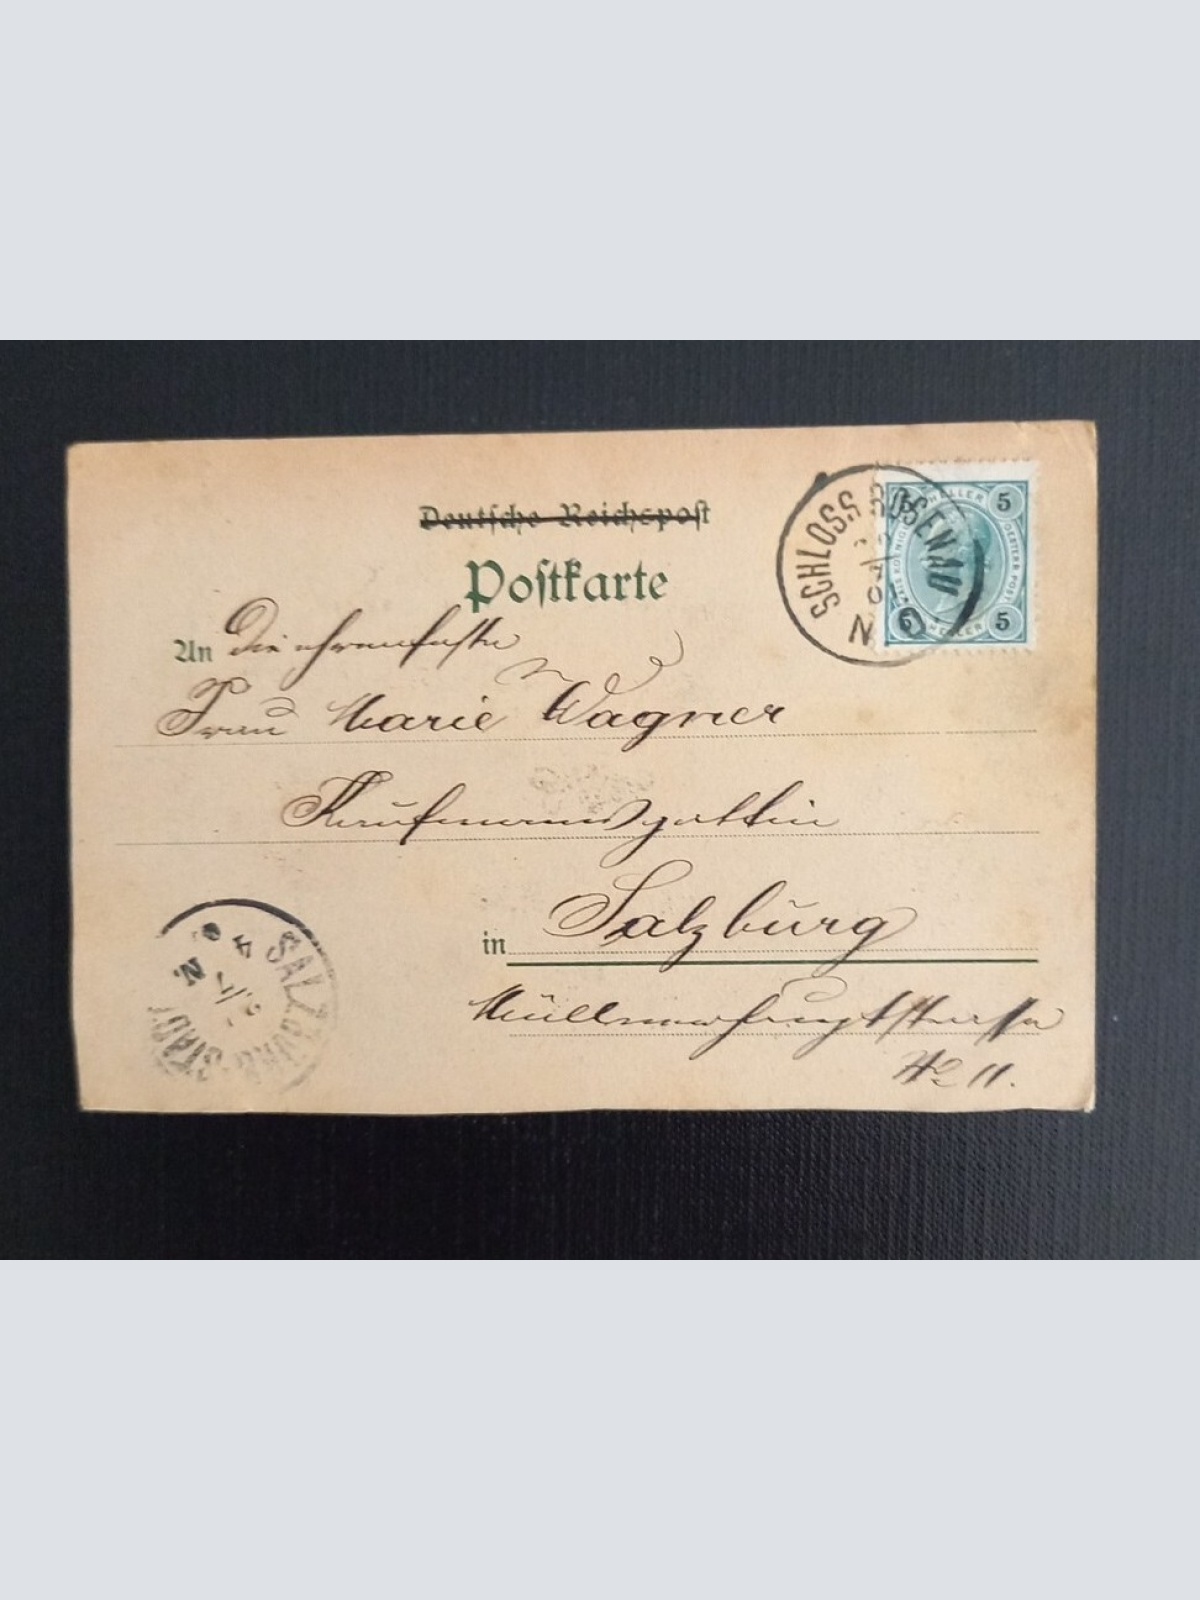 Deutsche Reichspost
Postkarte
An die ehrenfeste
Frau Marie Wagner
Kaufmannsgattin
in Salzburg
Müllnerhauptstrasse
No 11.
SCHLOSS ROSENAU
01
N.Ö
5 HELLER 5
KAIS KOENIGL
OESTERR POST
5 HELLER 5
SALZBURG STADT
4
N.